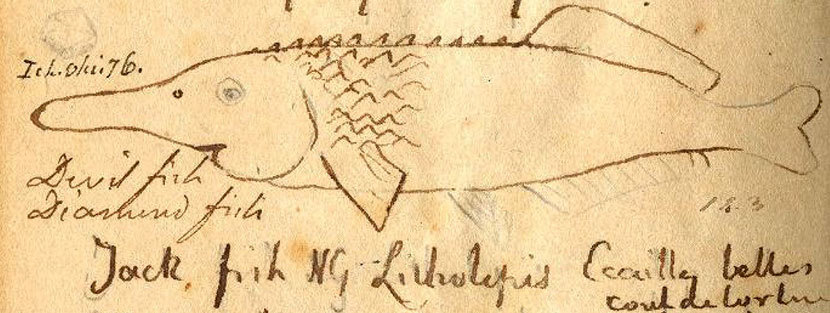 Ich. Ohi. 76.
Devil fish
Diamond fish
123
Jack fish NG Litholepis Ecailles belles